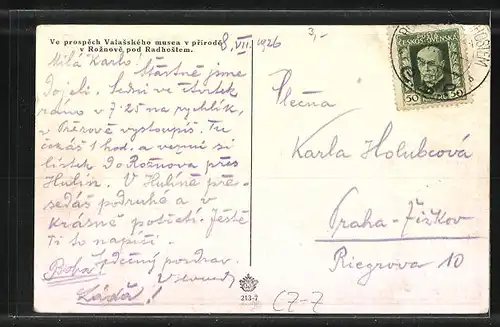 Ve prospěch Valašského musea v přírodě
v Rožnově pod Radhoštěm.
8. VII. 1926
3,-
Milá Karlo! Šťastně jsme
dojeli. Sedni ve čtvrtek
ráno v 7.25 na rychlík,
v Přerově vystoupíš. Tu
čekáš 1 hod. a vezmi si
lístek do Rožnova přes
Hulín. V Hulíně pře-
sedáš podruhé a v
Krásně potřetí. Ještě
Ti to napíši.
Srdečný pozdrav
Láďa!
ČESKOSLOVENSKO
50 50
Slečna
Karla Holubcová
Praha-Žižkov
Riegrova 10
213-7
CZ-7